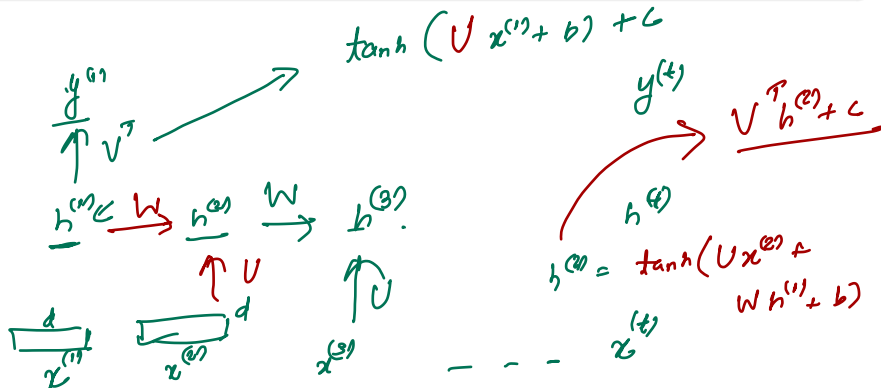 tanh (U x^(1) + b) + c
y^(1)
y^(t)
V^T
V^T h^(2) + c
h^(1) W h^(2) W h^(3)
h^(t)
U U
h^(2) = tanh(U x^(2) +
W h^(1) + b)
d d
x^(1) x^(2) x^(3) - - - x^(t)